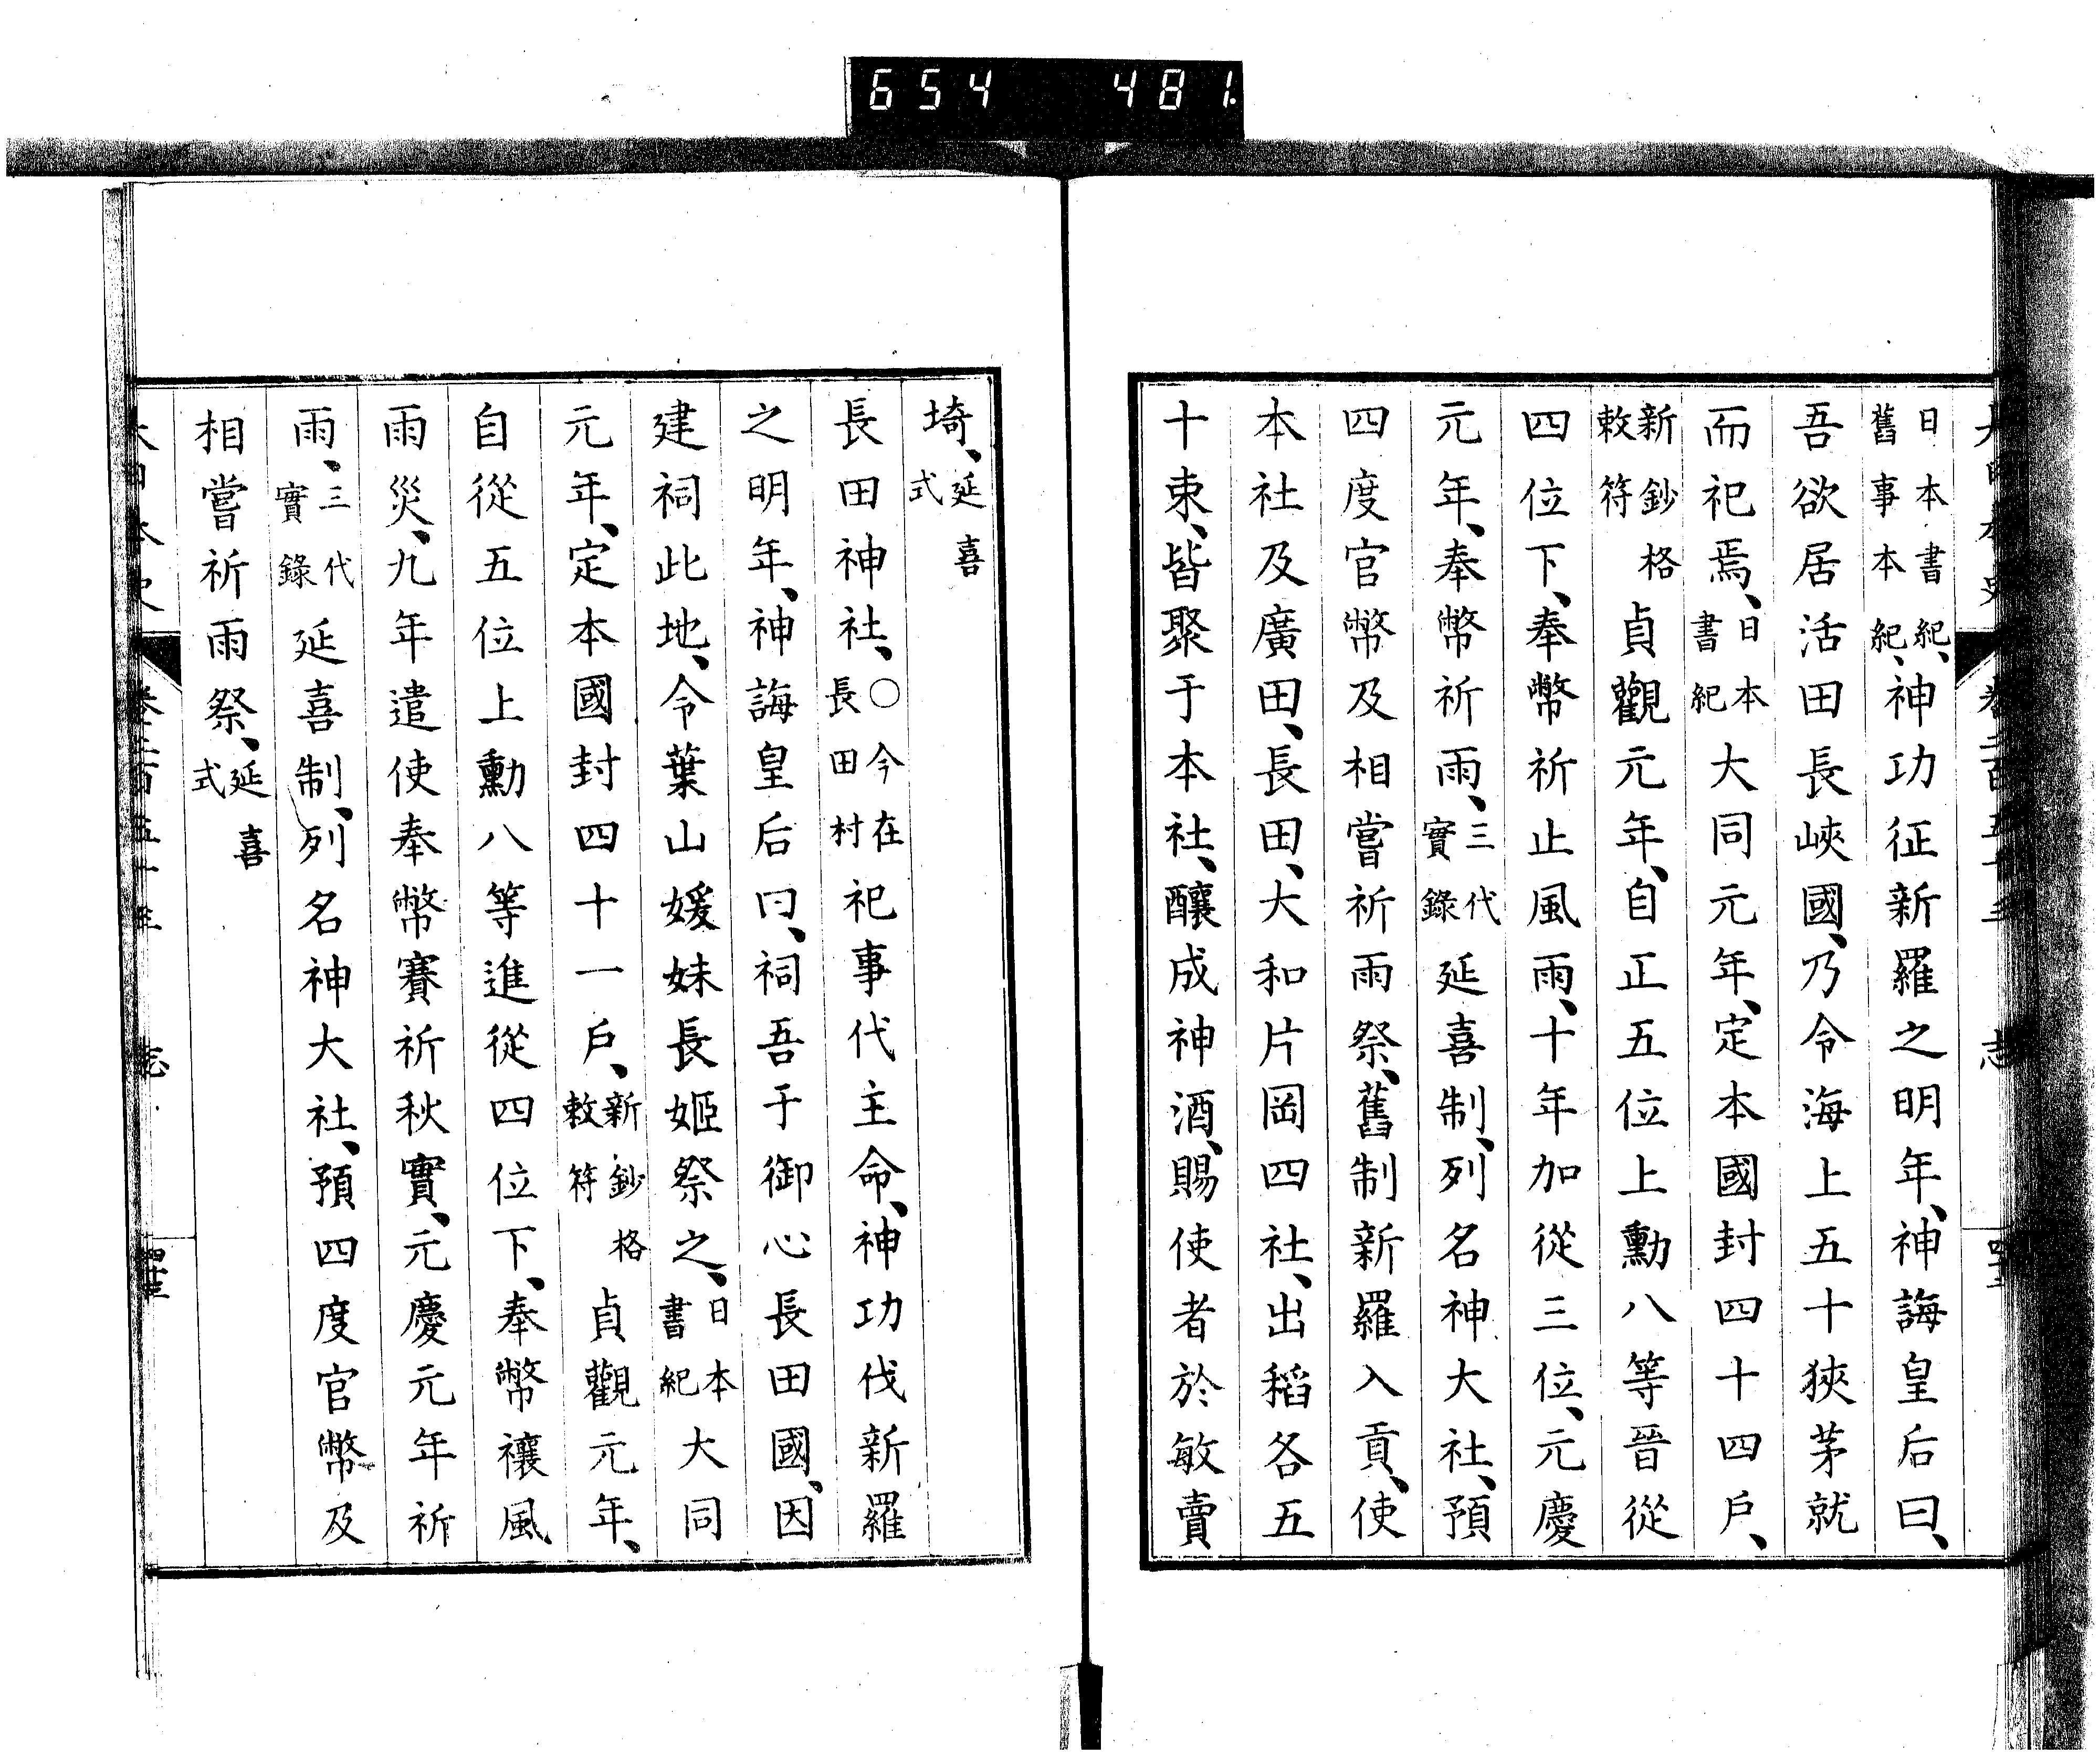 654 481.
日本書紀、舊事本紀、神功征新羅之明年、神誨皇后曰、
吾欲居活田長峽國、乃令海上五十狹茅就
而祀焉、日本書紀大同元年、定本國封四十四戶、
新鈔格敕符貞觀元年、自正五位上勳八等晉從
四位下、奉幣祈止風雨、十年加從三位、元慶
元年、奉幣祈雨、三代實錄延喜制、列名神大社、預
四度官幣及相嘗祈雨祭、舊制新羅入貢、使
本社及廣田、長田、大和片岡四社、出稻各五
十束、皆聚于本社、釀成神酒、賜使者於敏賣
埼、延喜式
長田神社、○今在長田村祀事代主命、神功伐新羅
之明年、神誨皇后曰、祠吾于御心長田國、因
建祠此地、令葉山媛妹長姬祭之、日本書紀大同
元年、定本國封四十一戶、新鈔格敕符貞觀元年、
自從五位上勳八等進從四位下、奉幣禳風
雨災、九年遣使奉幣賽祈秋實、元慶元年祈
雨、三代實錄延喜制、列名神大社、預四度官幣及
相嘗祈雨祭、延喜式
志